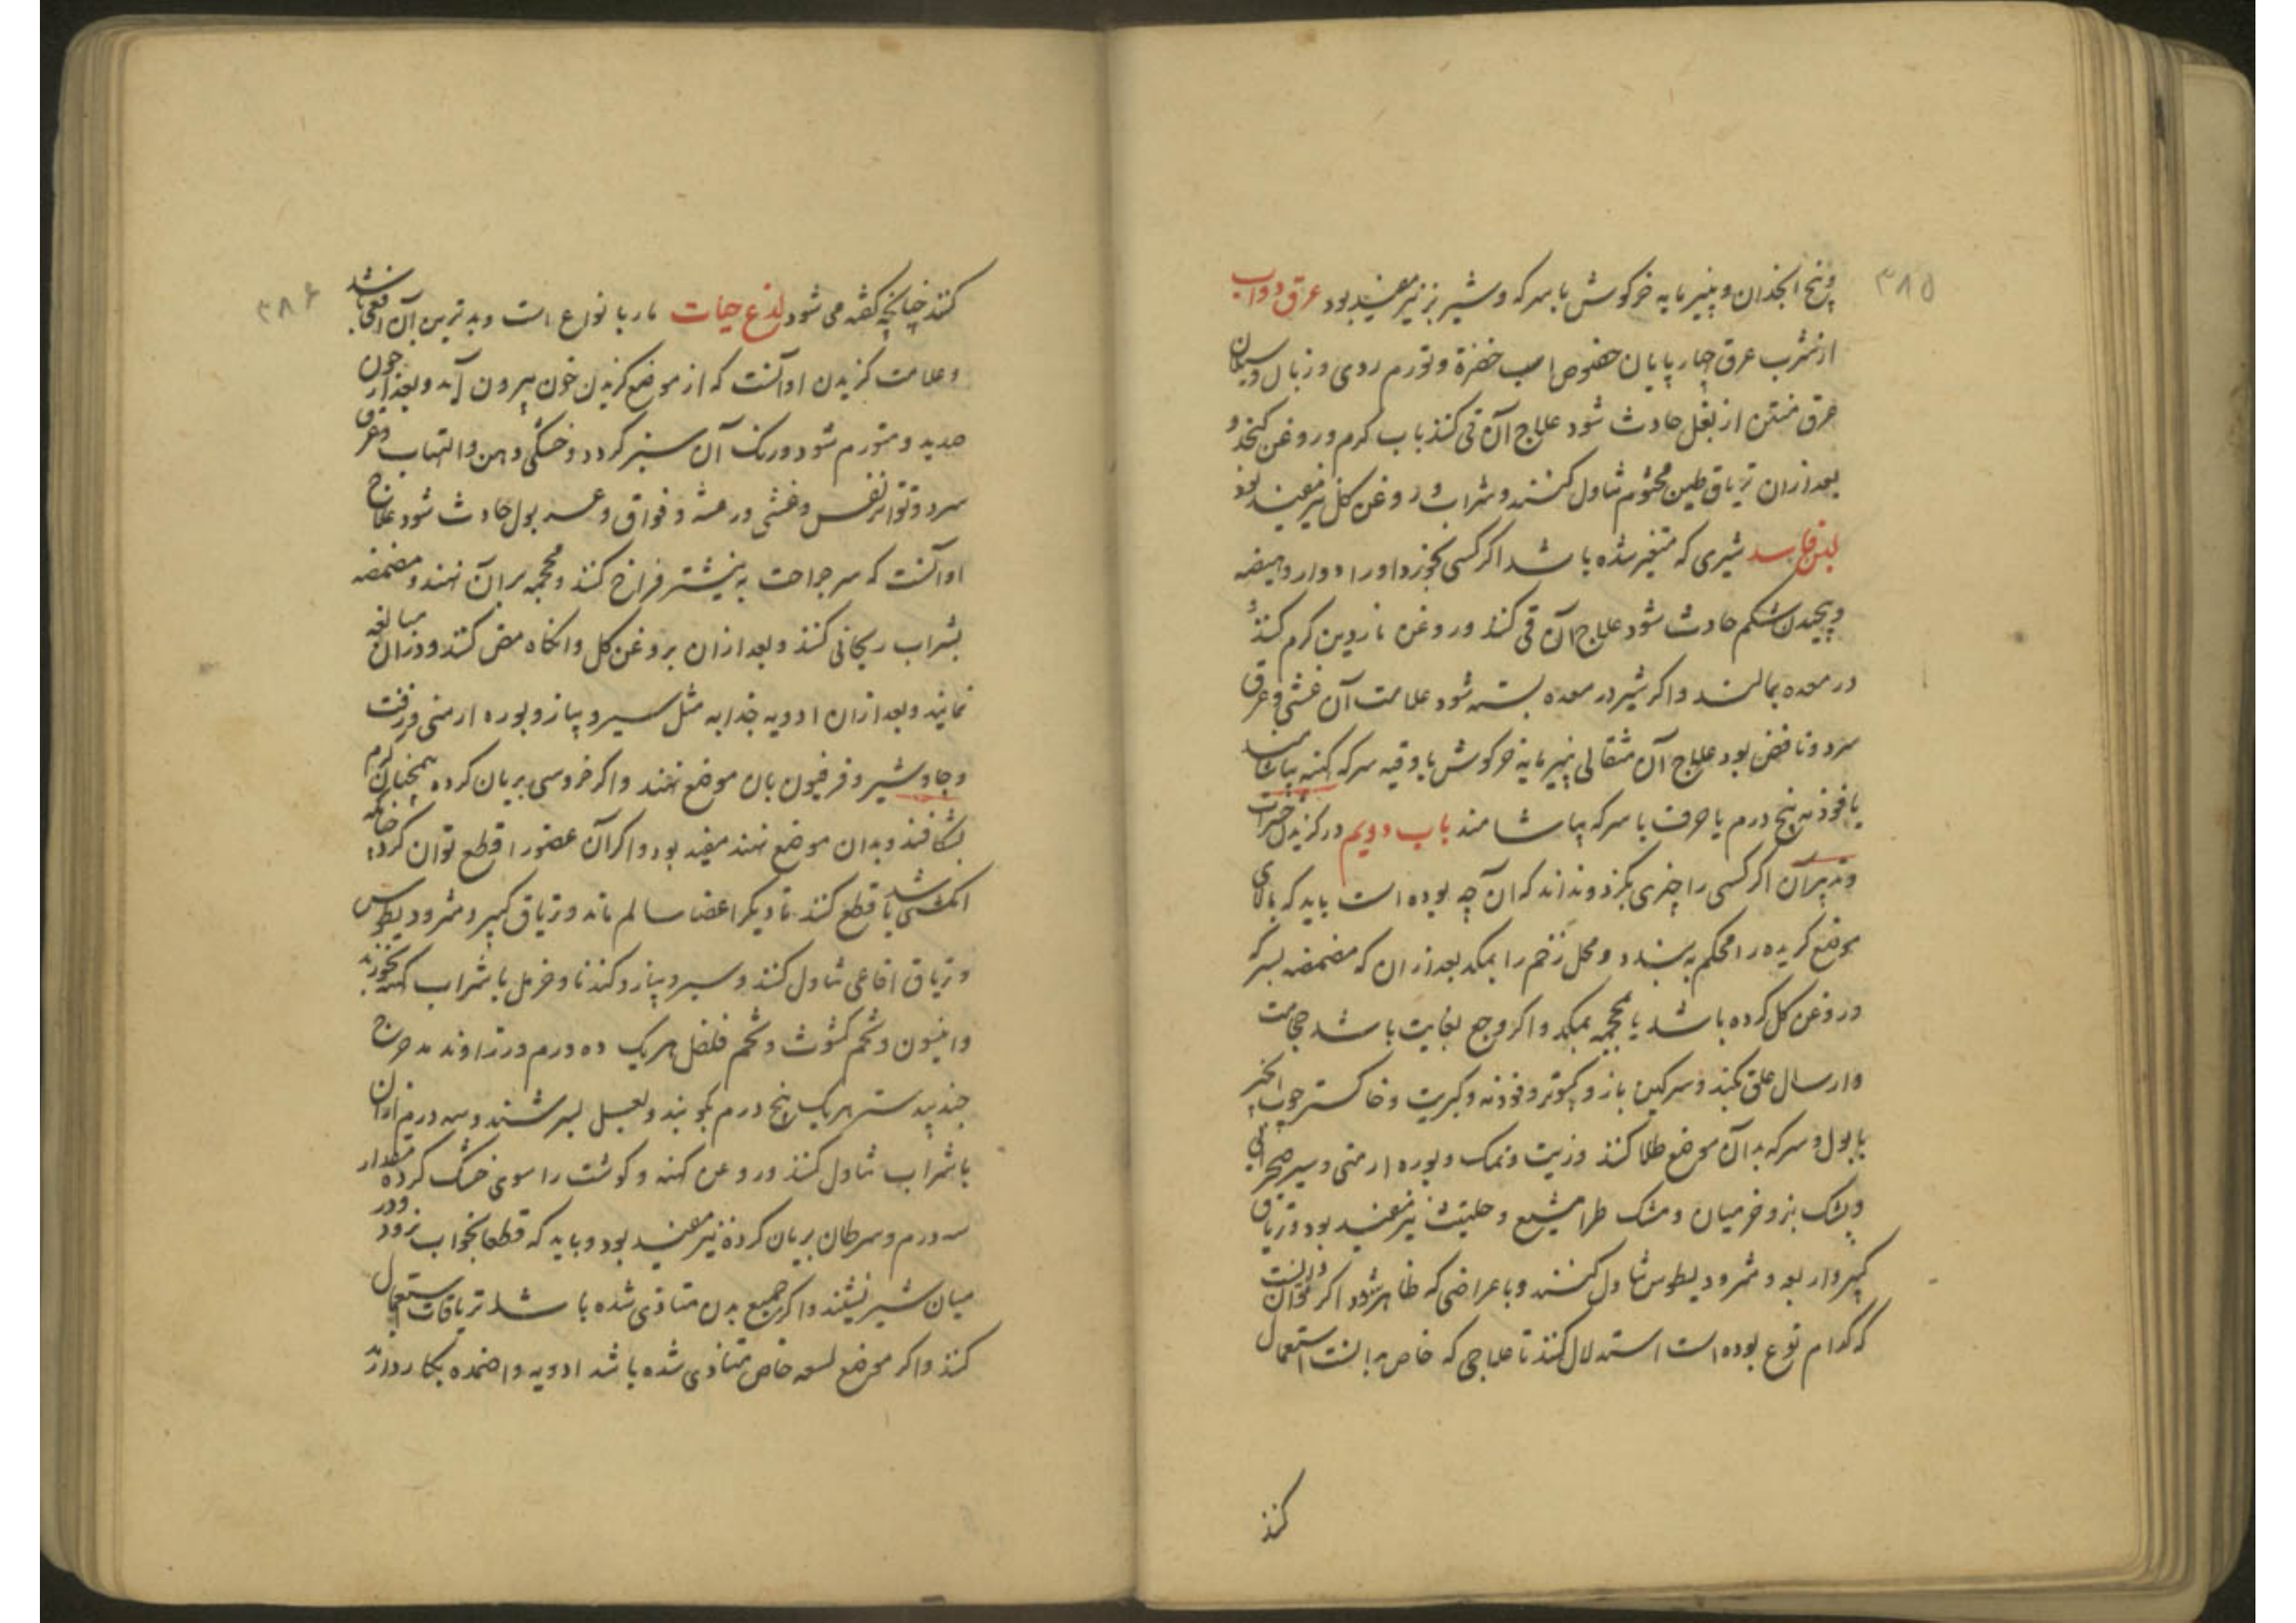 ۳۸۵
وبیخ انجدان و پنیر مایه خرکوش با سرکه و شیر بز نیز مفید بود عرق دواب
از شرب عرق چهارپایان خصوص اسب خضرة و تورم روی و زبان و سیلان
عرق منتن از بغل حادث شود علاج آن قی کنند باب کرم و روغن کنجد و
بعد از ان تریاق طین مختوم تناول کنند و شراب و روغن کل نیز مفید بود
لبن فاسد شیری که متغیر شده باشد اکر کسی بخورد او را دوار و هیضه
و پیچیدن شکم حادث شود علاج آن قی کنند و روغن ناردین کرم کنند
در معده بمالند و اکر شیر در معده بسته شود علامت آن غشی و عرق
سرد و نافض بود علاج آن مثقالی پنیر مایه خرکوش با وقیه سرکه کهنه بیاشامند
یا فوذنه پنج درم یا حرف با سرکه بیاشامند باب دویم در کزیدن حشرات
و تدبیر آن اکر کسی را چیزی بکزد و نداند که آن چه بوده است باید که بالای
موضع کزیده را محکم به بندد و محل زخم را بمکد بعد از ان که مضمضه بسرکه
و روغن کل کرده باشد یا محجمه بمکد و اکر وجع بغایت باشد حجامت
و ارسال علق کند و سرکین باز و کبوتر و فوذنه و کبریت و خاکستر چوب انجیر
با بول و سرکه بدان موضع طلا کنند و زیت و نمک و بوره ارمنی و سیر صحرایی
و پشک بز و خرمیان و مشک طرامشیع و حلتیت نیز مفید بود و تریاق
کبیر و اربعه و مثرودیطوس تناول کنند و باعراضی که ظاهر شود اکر توان دانست
که کدام نوع بوده است استدلال کنند تا علاجی که خاص بدانست استعمال
کنند
۳۸۶
کنند چنانچه کفته می شود لدغ حیات مار بانواع است و بدترین آن افعی باشد
و علامت کزیدن او آنست که از موضع کزیدن خون بیرون آید و بعد از ان چون
صدید و متورم شود و رنک آن سبز کردد و خشکی دهن و التهاب و عرق
سرد و تواتر نفس و غشی و رعشه و فواق و عسر بول حادث شود علاج
او آنست که سر جراحت به نیشتر فراخ کنند و محجمه بران نهند و مضمضه
بشراب ریحانی کنند و بعد از ان بروغن کل و انکاه مص کنند و در ان مبالغه
نمایند و بعد از ان ادویه جذابه مثل سیر و پیاز و بوره ارمنی و زفت
و جاوشیر و فرفیون بان موضع نهند و اکر خروسی بریان کرده همچنان کرم
بشکافند و بدان موضع نهند مفید بود و اکر آن عضو را قطع توان کرد چنانکه
انکشتی باشد قطع کنند تا دیکر اعضا سالم ماند و تریاق کبیر و مثرودیطوس
و تریاق افاعی تناول کنند و سیر و پیاز و کندنا و خرمل با شراب کهنه بخورند
و انیسون و تخم کشوث و تخم فلفل هر یک ده درم و زراوند مدحرج
جندبیدستر هر یک پنج درم بکوبند و بعسل بسرشند و سه درم از ان
با شراب تناول کنند و روغن کهنه و کوشت راسوی خشک کرده مقدار
سه درم و سرطان بریان کرده نیز مفید بود و باید که قطعا بخواب نرود و در
میان شیر نشیند و اکر جمیع بدن متاذی شده باشد تریاقات استعمال
کنند و اکر موضع لسعه خاص متاذی شده باشد ادویه و اضمده بکار دارند